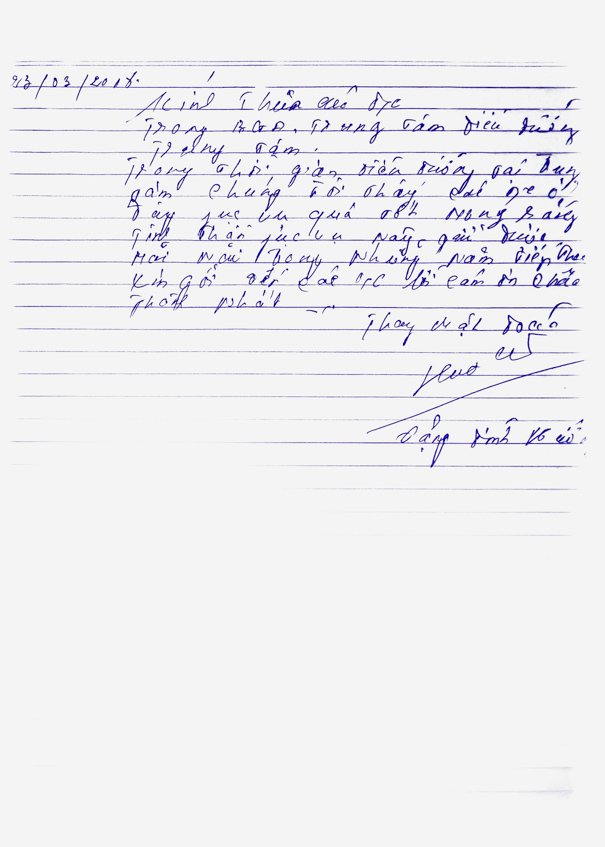 23/03/2018.
Kính Thưa các đ/c
Trong BGĐ. Trung tâm điều dưỡng
Trung tâm.
Trong thời gian điều dưỡng tại Trung
tâm chúng tôi thấy các đ/c ở
đây phục vụ quá tốt mong rằng
tinh thần phục vụ này giữ được
mãi mãi trong những năm tiếp theo
xin gởi đến các đ/c lời cảm ơn chân
thành nhất
Thay mặt đoàn
Đặng Đình